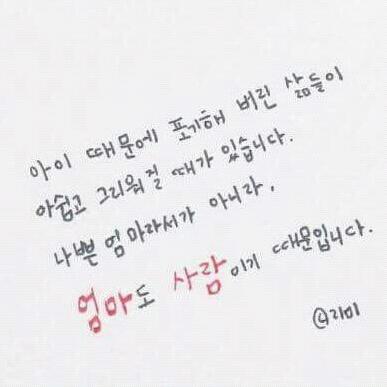 아이 때문에 포기해 버린 삶들이
아쉽고 그리워 질 때가 있습니다.
나쁜 엄마라서가 아니라,
엄마도 사람이기 때문입니다.
@리미